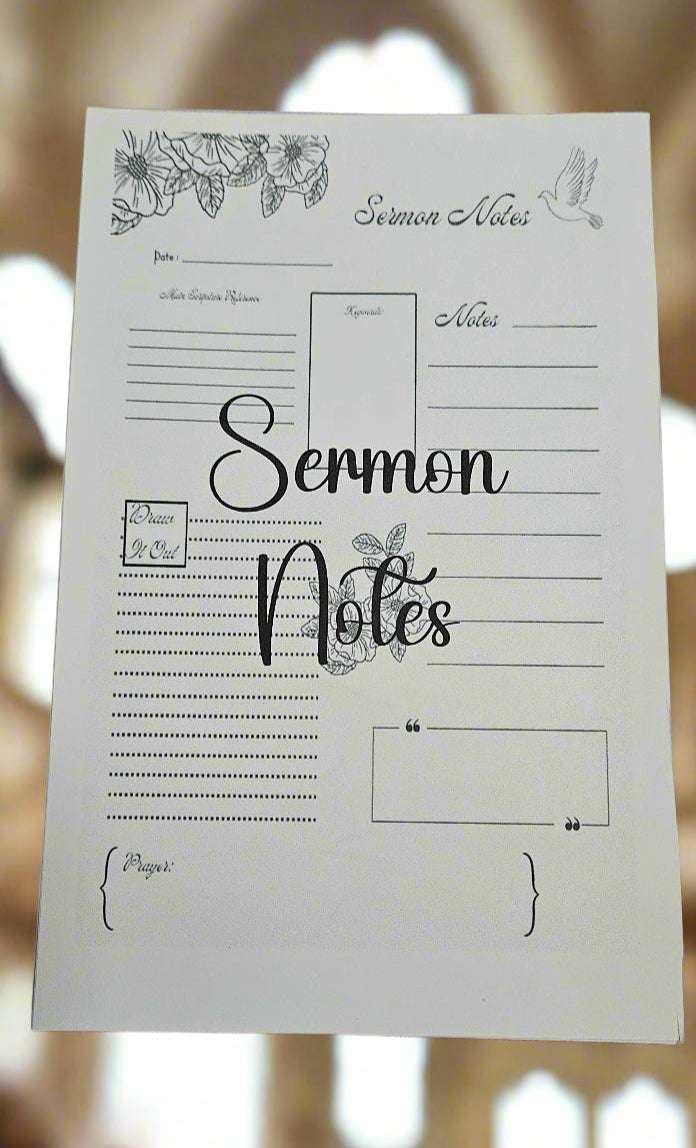 Sermon Notes
Date :
Main Scripture Reference
Keywords
Notes
Sermon
Notes
Draw
It Out
“
”
Prayer: